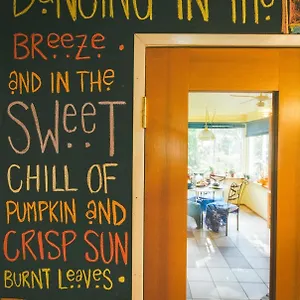 DANCING IN THE
BREEZE
AND IN THE
SWEET
CHILL OF
PUMPKIN AND
CRISP SUN
BURNT LEAVES.